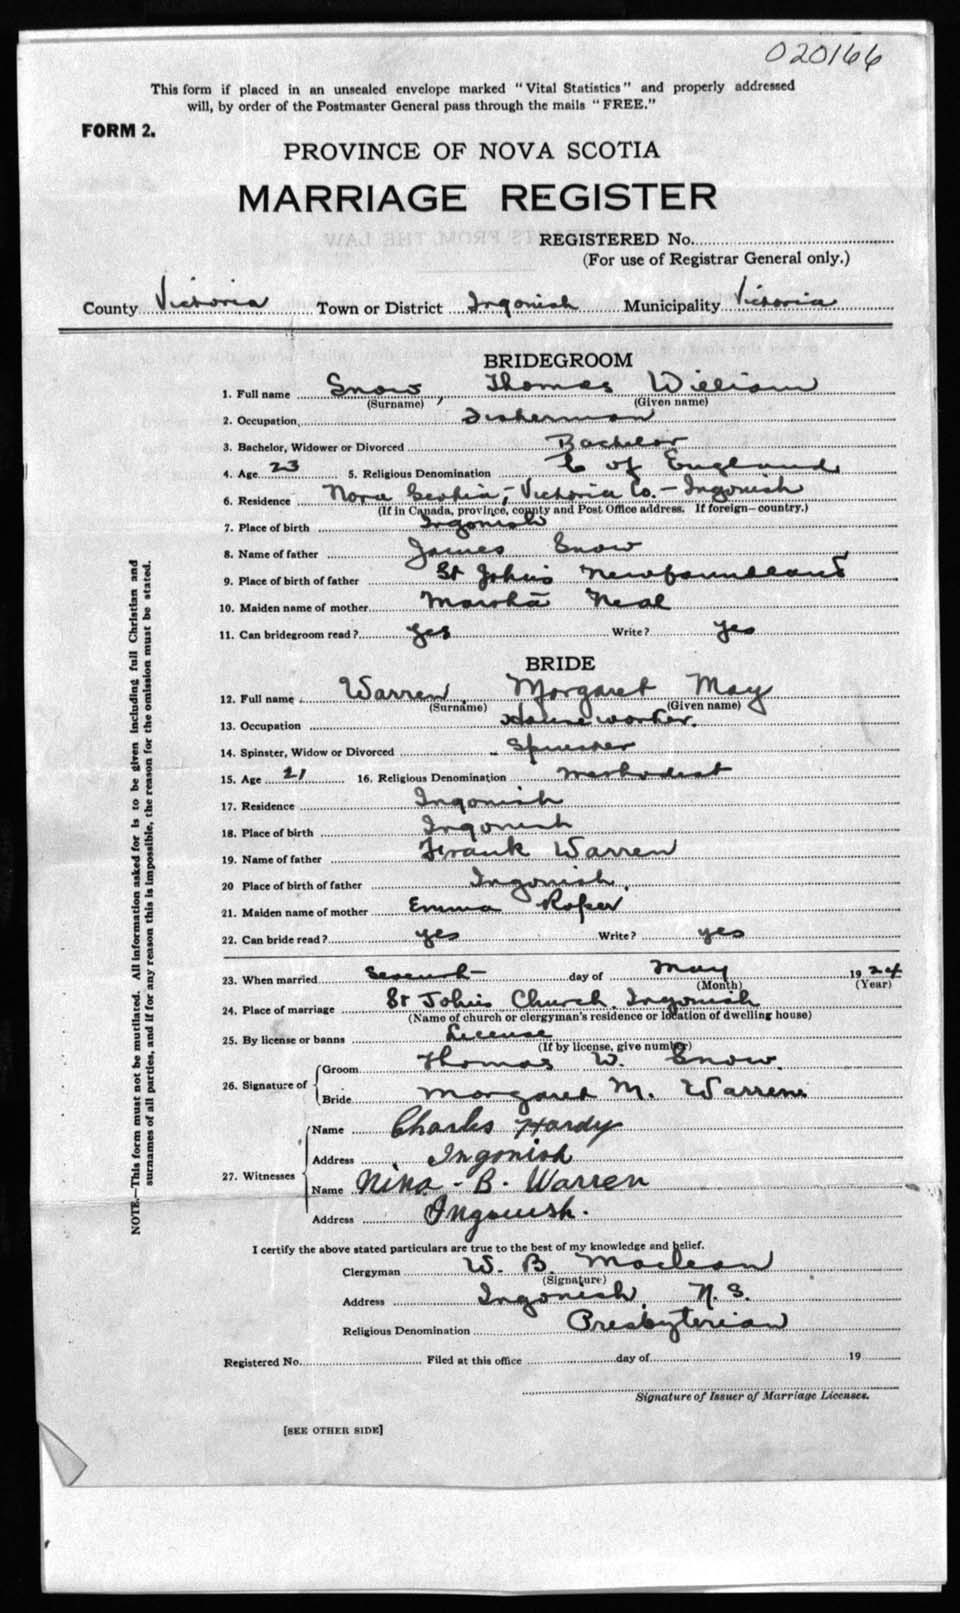 020166
This form if placed in an unsealed envelope marked "Vital Statistics" and properly addressed
will, by order of the Postmaster General pass through the mails "FREE."
FORM 2.
PROVINCE OF NOVA SCOTIA
MARRIAGE REGISTER
REGISTERED No.
(For use of Registrar General only.)
County Victoria Town or District Ingonish Municipality Victoria
BRIDEGROOM
1. Full name Snow, Thomas William
(Surname) (Given name)
2. Occupation Fisherman
3. Bachelor, Widower or Divorced Bachelor
4. Age 23 5. Religious Denomination C of England
6. Residence Nova Scotia, - Victoria Co. - Ingonish
(If in Canada, province, county and Post Office address. If foreign—country.)
7. Place of birth Ingonish
8. Name of father James Snow
9. Place of birth of father St John's Newfoundland
10. Maiden name of mother Martha Neal
11. Can bridegroom read? yes Write? yes
BRIDE
12. Full name Warren, Margaret May
(Surname) (Given name)
13. Occupation Houseworker.
14. Spinster, Widow or Divorced Spinster
15. Age 21 16. Religious Denomination Methodist
17. Residence Ingonish
18. Place of birth Ingonish
19. Name of father Frank Warren
20 Place of birth of father Ingonish
21. Maiden name of mother Emma Roper
22. Can bride read? yes Write? yes
23. When married Seventh day of May 1924
(Month) (Year)
24. Place of marriage St John's Church, Ingonish
(Name of church or clergyman's residence or location of dwelling house)
25. By license or banns License
(If by license, give number)
26. Signature of Groom Thomas W. Snow.
Bride Margaret M. Warren
27. Witnesses Name Charles Hardy
Address Ingonish
Name Nina - B. Warren
Address Ingonish.
I certify the above stated particulars are true to the best of my knowledge and belief.
Clergyman W. B. Maclean
(Signature)
Address Ingonish, N. S.
Religious Denomination Presbyterian
Registered No. Filed at this office day of 19
Signature of Issuer of Marriage Licenses.
[SEE OTHER SIDE]
NOTE.—This form must not be mutilated. All information asked for is to be given including full Christian and
surnames of all parties, and if for any reason this is impossible, the reason for the omission must be stated.